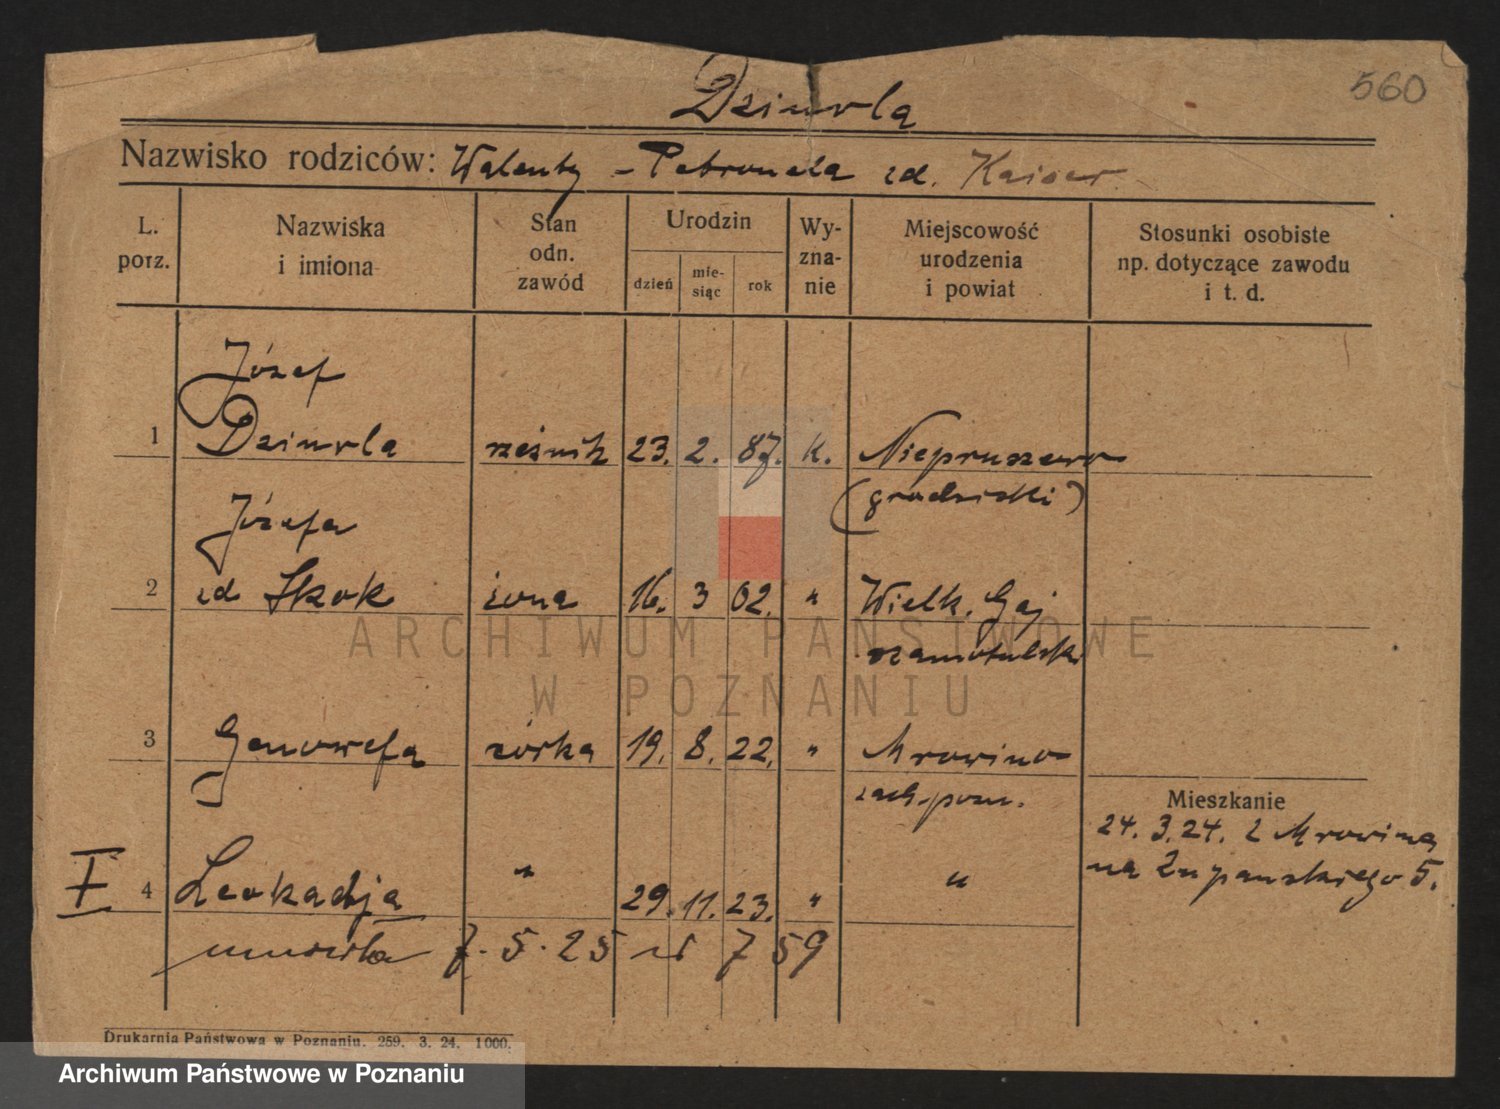 560
Dziurla
Nazwisko rodziców: Walenty - Petronela zd. Kaiser
L. porz.
Nazwiska i imiona
Stan odn. zawód
Urodzin
dzień
mie-siąc
rok
Wy-zna-nie
Miejscowość urodzenia i powiat
Stosunki osobiste np. dotyczące zawodu i t. d.
Józef
1 Dziurla rzeźnik 23. 2. 87. k. Niepruszewo
(grodziski)
Józefa
2 zd Skok żona 16. 3 02. " Wielk. Gaj
szamotulski
3 Genowefa córka 19. 8. 22. " Mrowino
zach-pozn.
Mieszkanie
24. 3. 24. z Mrowina
na Żupańskiego 5.
I 4 Leokadja " 29. 11. 23. " "
umarła 7. 5. 25 nr 759
ARCHIWUM PAŃSTWOWE
W POZNANIU
Drukarnia Państwowa w Poznaniu. 259. 3. 24. 1000.
Archiwum Państwowe w Poznaniu